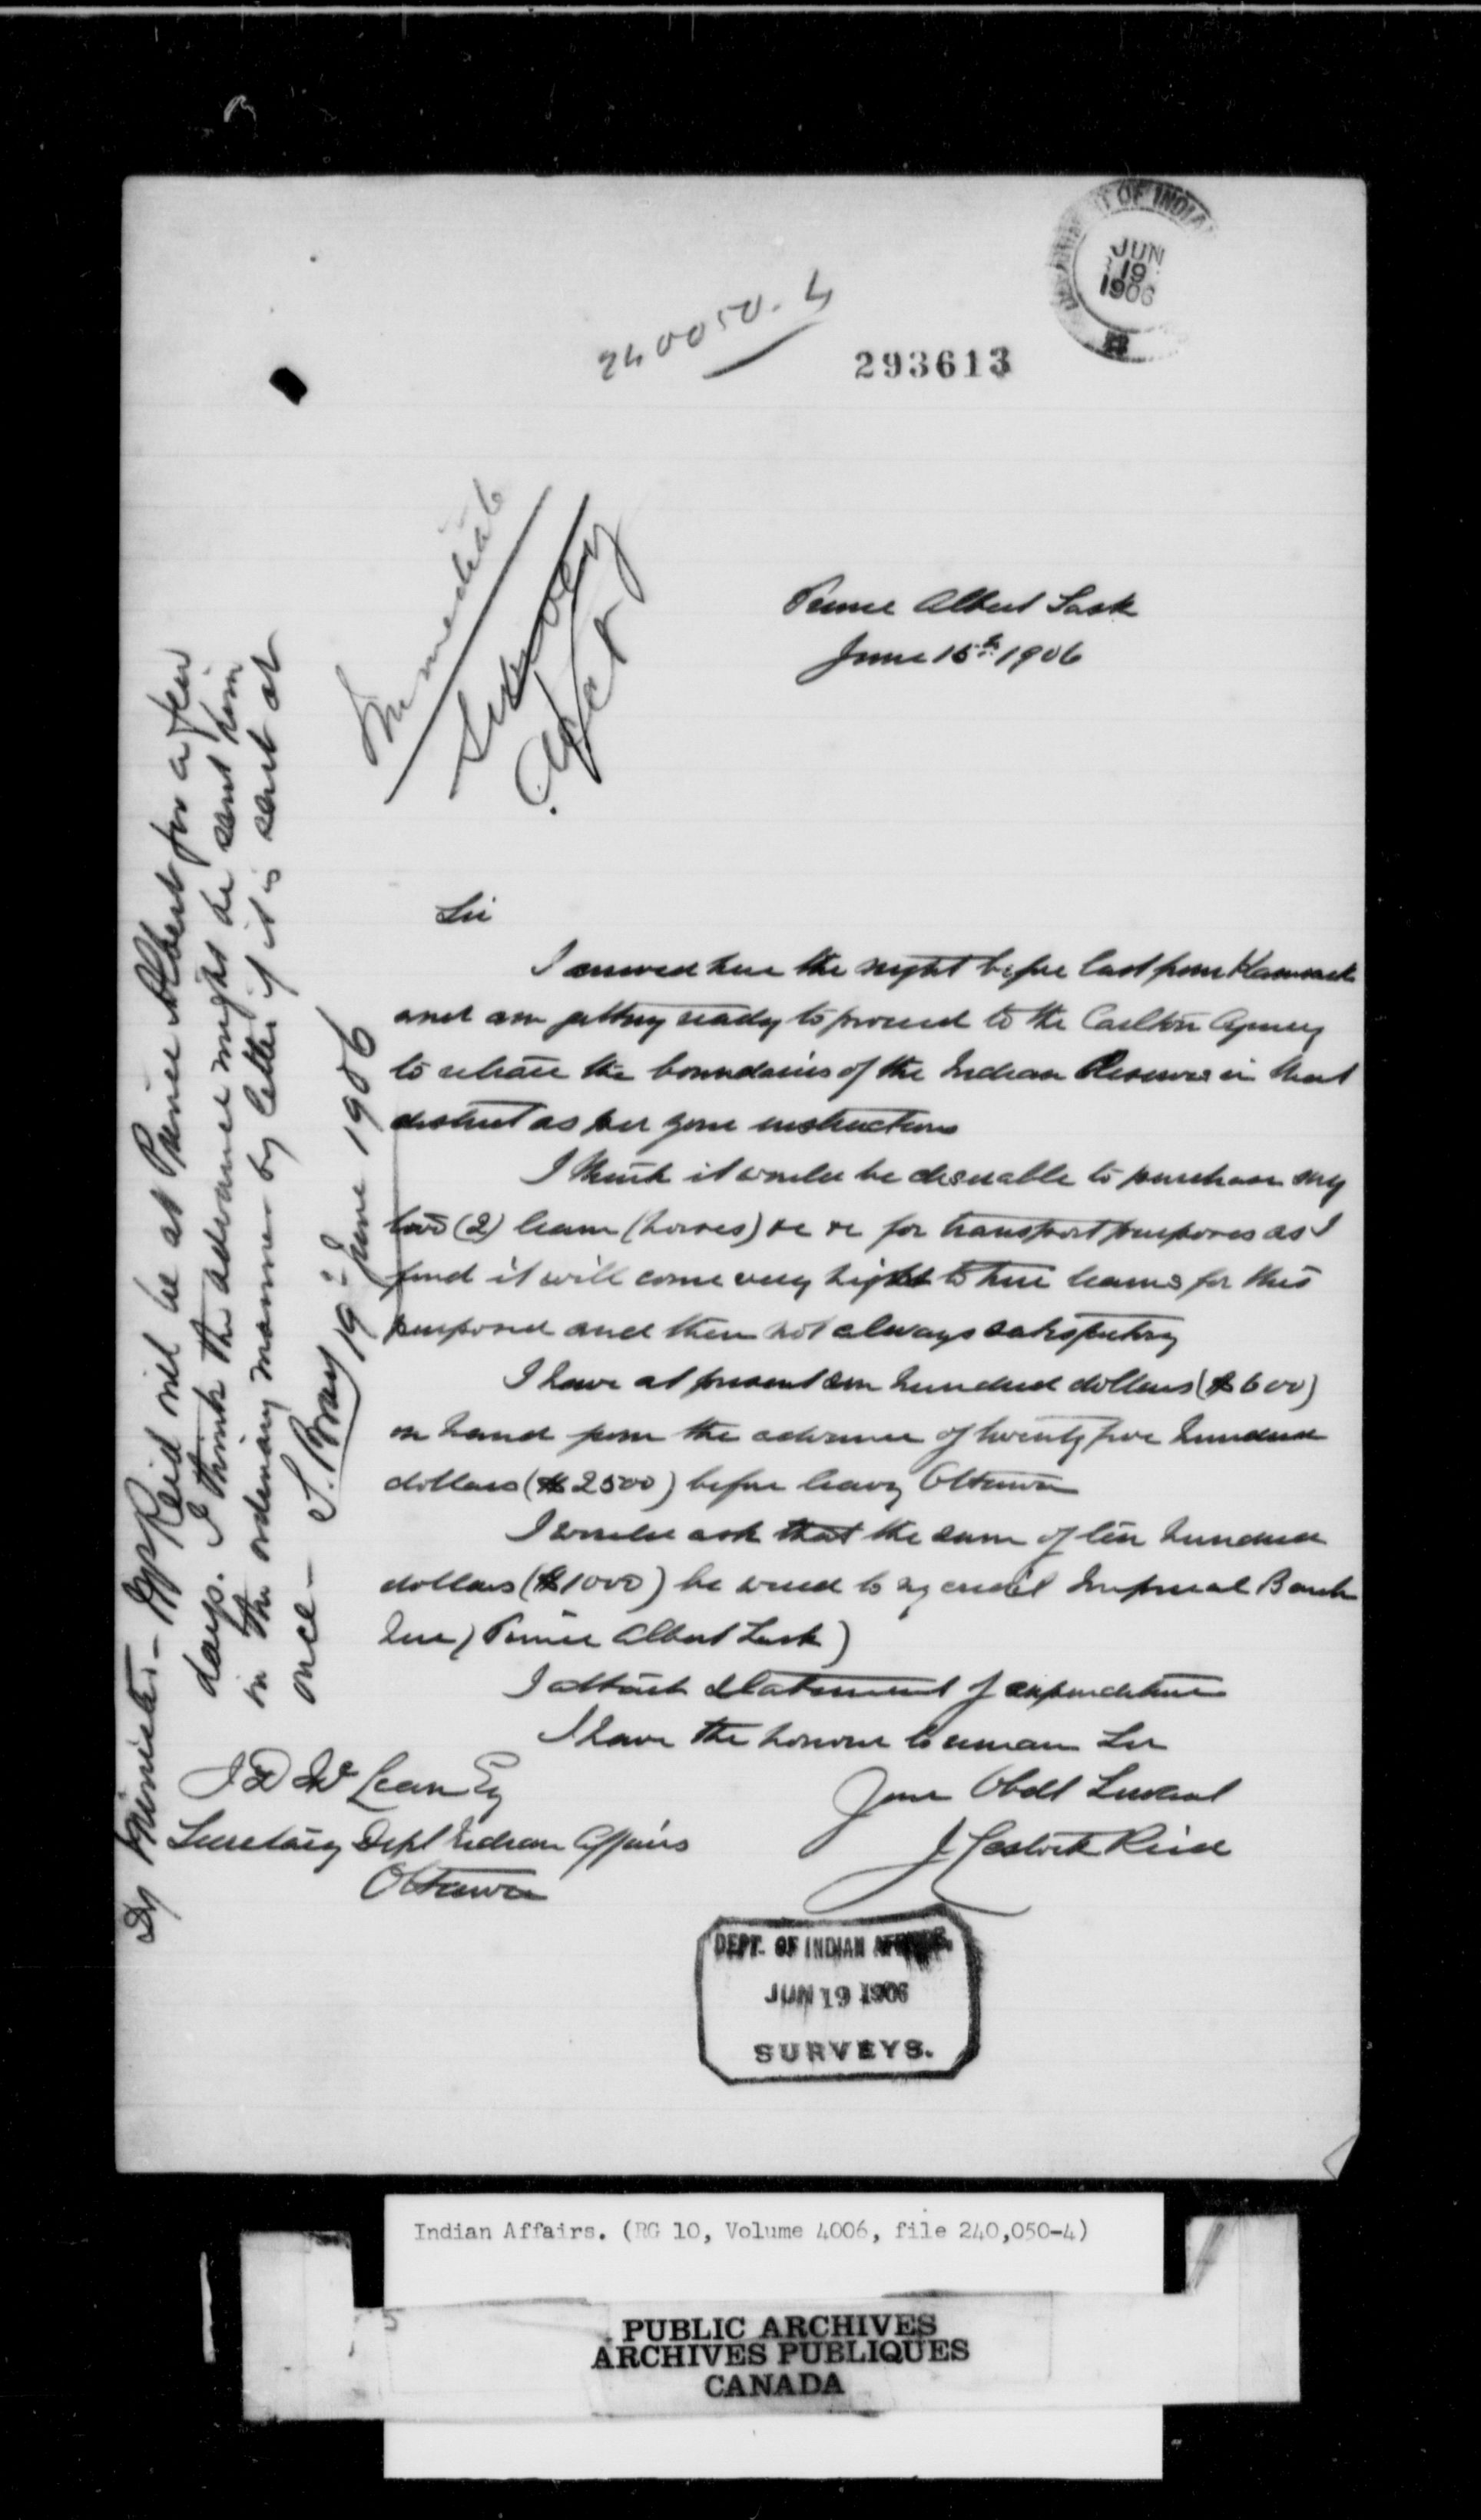 DEPARTMENT OF INDIAN
JUN
19
1906
240050-4
293613
Immediate
Survey
Prince Albert Sask
June 15th 1906
Sir
I arrived here the night before last from Kamsack
and am getting ready to proceed to the Carlton Agency
to retrace the boundaries of the Indian Reserves in that
district as per your instructions
I think it would be desirable to purchase say
two (2) team (horses) &c &c for transport purposes as I
find it will come very high to hire teams for this
purpose and then not always satisfactory
I have at present six hundred dollars ($600)
on hand from the advance of twenty five hundred
dollars ($2500) before leaving Ottawa
I would ask that the sum of ten hundred
dollars ($1000) be wired to my credit Imperial Bank
here (Prince Albert Sask)
I attach statement of expenditure
I have the honour to remain Sir
Your Obdt Servant
J Lestock Reid
J D McLean Esq
Secretary Dept Indian Affairs
Ottawa
Dy Minister:- Mr Reid will be at Prince Albert for a few
days. I think the advance might be sent him
in the ordinary manner by letter if it is sent at
once -
S. Bray 19th June 1906
DEPT. OF INDIAN AFFAIRS.
JUN 19 1906
SURVEYS.
Indian Affairs. (RG 10, Volume 4006, file 240,050-4)
PUBLIC ARCHIVES
ARCHIVES PUBLIQUES
CANADA